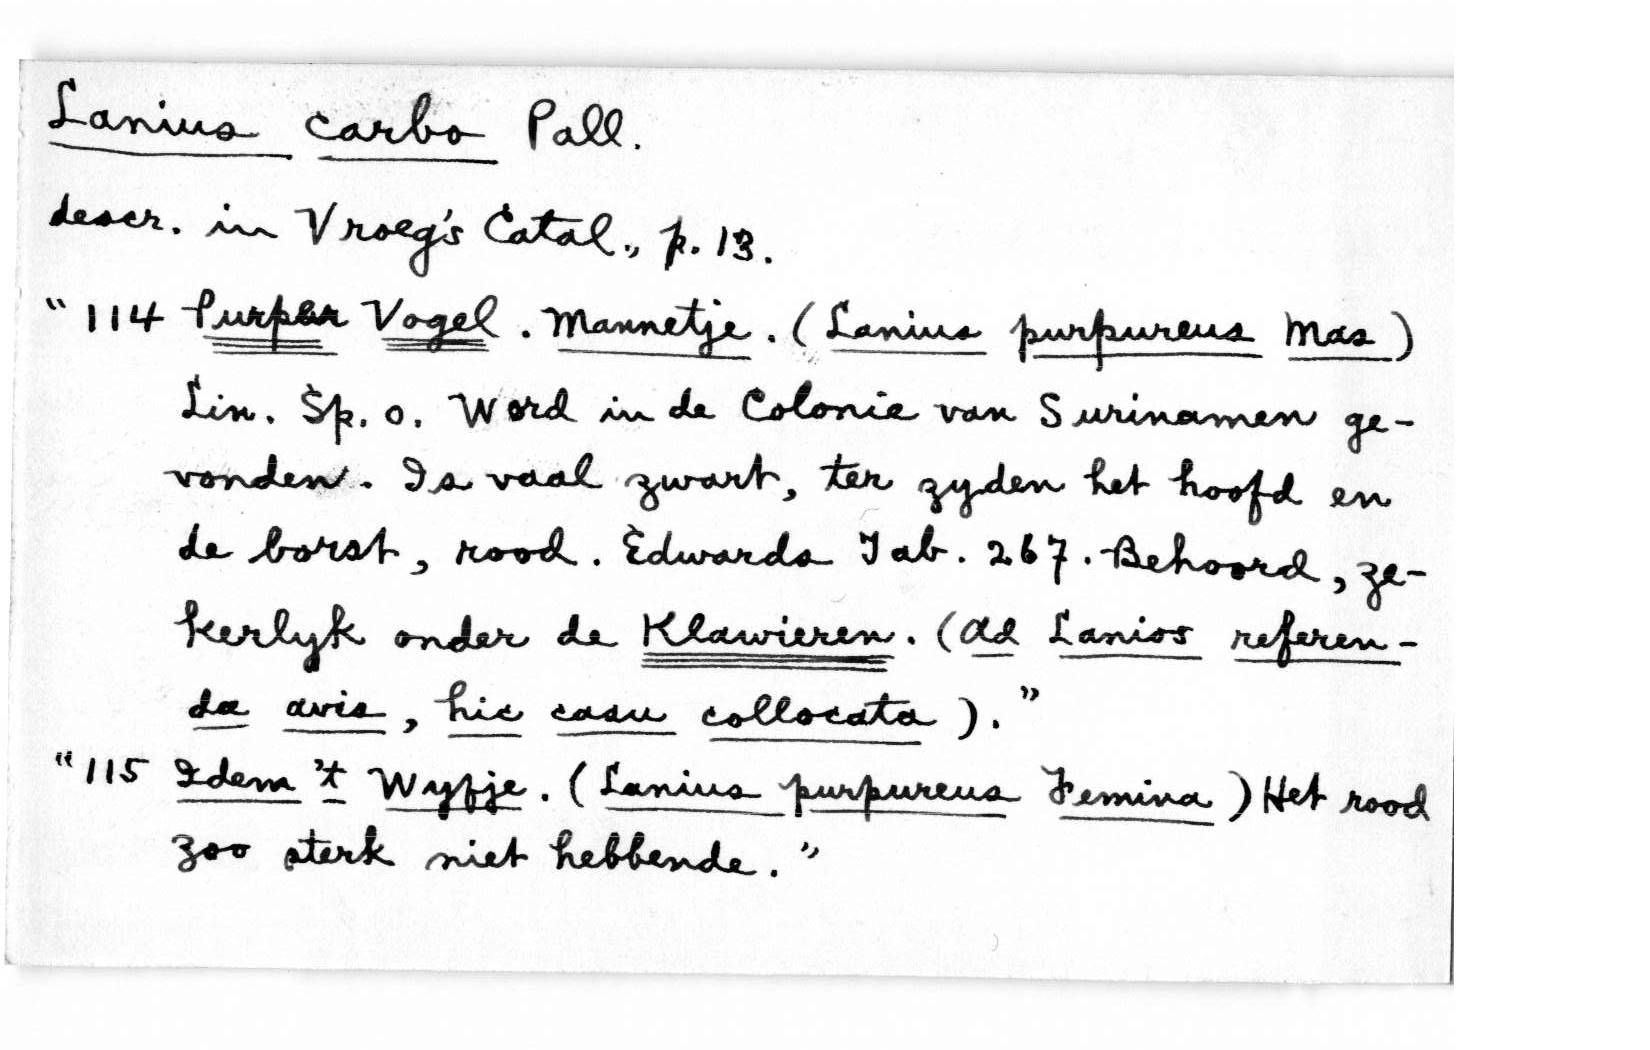 Lanius carbo Pall.
descr. in Vroeg's Catal., p. 13.
"114 Purper Vogel. Mannetje. (Lanius purpureus Mas)
Lin. Sp. 0. Word in de Colonie van Surinamen ge-
vonden. Is vaal zwart, ter zyden het hoofd en
de borst, rood. Edwards Tab. 267. Behoord, ze-
kerlyk onder de Klawieren. (Ad Lanios referen-
da avis, hic casu collocata)."
"115 Idem 't Wyfje. (Lanius purpureus Femina) Het rood
zoo sterk niet hebbende."